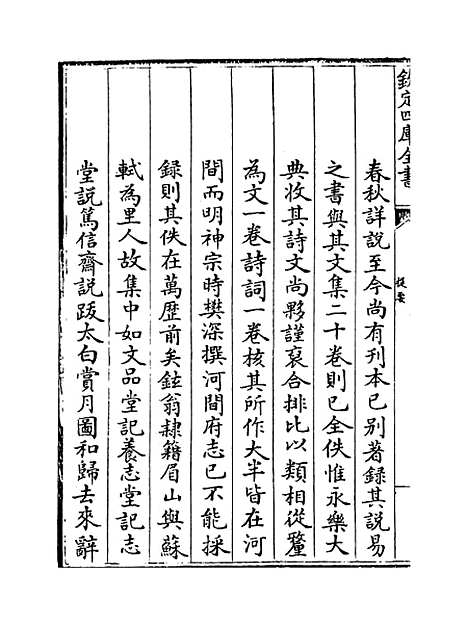 欽定四庫全書
提要
春秋詳說至今尚有刊本已別著録其說易
之書與其文集二十卷則已全佚惟永樂大
典收其詩文尚夥謹裒合排比以類相從釐
為文一卷詩詞一卷核其所作大半皆在河
間而明神宗時樊深撰河間府志已不能採
録則其佚在萬歴前矣鉉翁隷籍眉山與蘇
軾為里人故集中如文品堂記養志堂記志
堂說篤信齋說跋太白賞月圖和歸去來辭